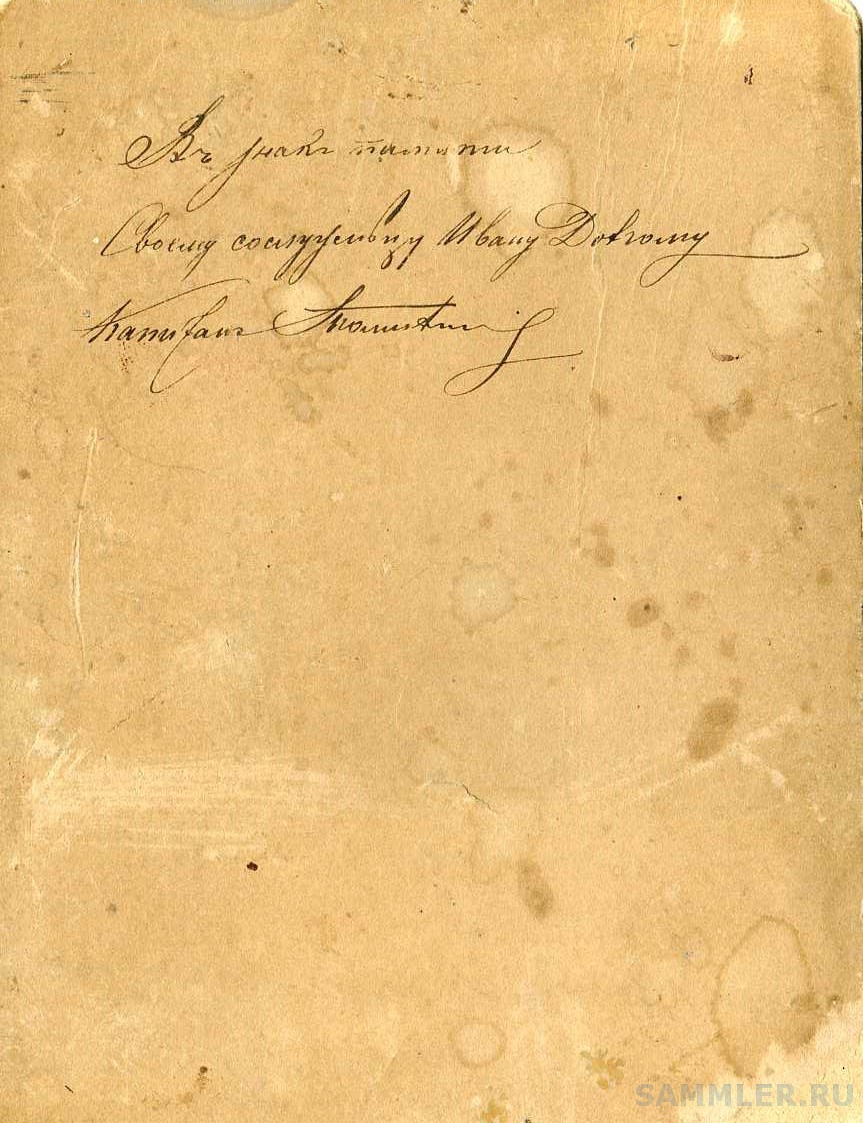 Въ знакъ памяти
Своему сослуживцу Ивану
Капитанъ
SAMMLER.RU